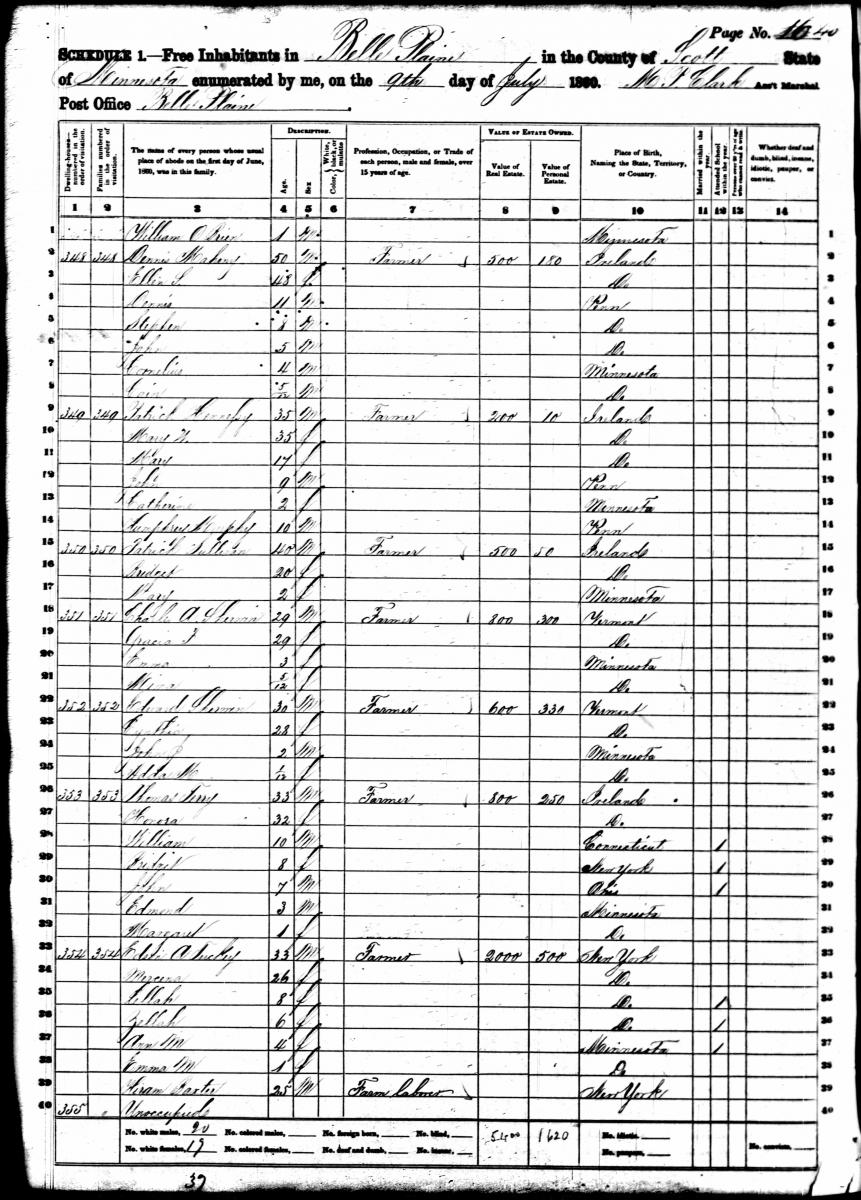 Page No. 40
SCHEDULE 1.—Free Inhabitants in Belle Plaine in the County of Scott State
of Minnesota enumerated by me, on the 9th day of July 1860. M F Clark Ass't Marshal
Post Office Belle Plaine
Dwelling-houses—numbered in the order of visitation.
Families numbered in the order of visitation.
The name of every person whose usual place of abode on the first day of June, 1860, was in this family.
DESCRIPTION.
Age.
Sex
Color, White, black, or mulatto
Profession, Occupation, or Trade of each person, male and female, over 15 years of age.
VALUE OF ESTATE OWNED.
Value of Real Estate.
Value of Personal Estate.
Place of Birth, Naming the State, Territory, or Country.
Married within the year.
Attended School within the year.
Persons over 20 y'rs of age who cannot read & write.
Whether deaf and dumb, blind, insane, idiotic, pauper, or convict.
1 2 3 4 5 6 7 8 9 10 11 12 13 14
1 William O Brien 1 m Minnesota 1
2 348 348 Dennis Mahony 50 m Farmer 500 180 Ireland 2
3 Ellen S. 48 f Do. 3
4 Dennis 11 m Penn 4
5 Stephen 8 m Do. 5
6 John 5 m Do. 6
7 Cornelius 4 m Minnesota 7
8 5/12 m Do. 8
9 349 349 Patrick 35 m Farmer 200 10 Ireland 9
10 Mary 35 f Do. 10
11 Mary 17 f Do. 11
12 John 9 m Penn 12
13 Catherine 2 f Minnesota 13
14 Humphrey Murphy 10 m Penn 14
15 350 350 Patrick Sullivan 40 m Farmer 500 50 Ireland 15
16 Bridget 20 f Do. 16
17 Mary 2 f Minnesota 17
18 351 351 Charles A. Sherwin 29 m Farmer 800 300 Vermont 18
19 Gracia F 29 f Do. 19
20 Emma 3 f Minnesota 20
21 Mina 5/12 f Do. 21
22 352 352 Edward Sherwin 30 m Farmer 600 330 Vermont 22
23 Cynthia 28 f Do. 23
24 John 2 m Minnesota 24
25 Adda M 1/12 f Do. 25
26 353 353 Thomas Terry 33 m Farmer 800 250 Ireland 26
27 Honora 32 f Do. 27
28 William 10 m Connecticut 1 28
29 8 f New York 1 29
30 John 7 m Ohio 1 30
31 Edmond 3 m Minnesota 31
32 Margaret 1 f Do. 32
33 354 354 33 m Farmer 2000 500 New York 33
34 Mercena 26 f Do. 34
35 Lellah 8 f Do. 1 35
36 Zellah 6 f Do. 1 36
37 Ann M 4 f Minnesota 1 37
38 Emma M 1 f Do 38
39 Hiram Baxter 25 m Farm laborer New York 39
40 355 Unoccupied 40
No. white males, 20 No. colored males, No. foreign born, No. blind, 5400 1620 No. idiotic,
No. white females, 19 No. colored females, No. deaf and dumb, No. insane, No. paupers, No. convicts,
39